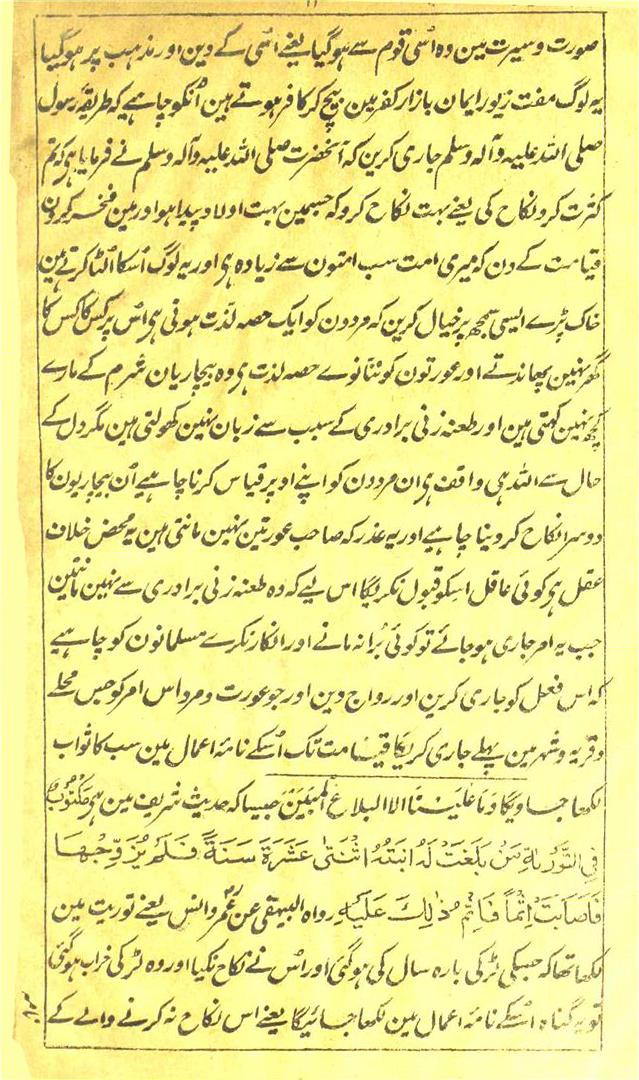 ۱۱
صورت وسیرت مین وہ اُسی قوم سے ہوگیا یعنے اُسی کے دین اور مذہب پر ہوگیا
یہ لوگ مفت زیور ایمان بازار کفر مین بیچ کر کافر ہوتے ہین اُنکو چاہیے کہ طریقہ رسول
صلی اللہ علیہ وآلہ وسلم جاری کرین کہ آنحضرت صلی اللہ علیہ وآلہ وسلم نے فرمایا ہی کہ تم
کثرت کرو نکاح کی یعنے بہت نکاح کرو کہ جسمین بہت اولاد پیدا ہو اور مین فخر کرون
قیامت کے دن کہ میری امت سب امتون سے زیادہ ہی اور یہ لوگ اُسکا اُلٹا کرتے ہین
خاک پڑے ایسی سمجھ پر خیال کرین کہ مردون کو ایک حصہ لذت ہوتی ہی اُس پر کس کا کس کا
گھر نہین پھاندتے اور عورتون کو ننانوے حصہ لذت ہی وہ بیچاریان شرم کے مارے
کچھ نہین کہتی ہین اور طعنہ زنی برادری کے سبب سے زبان نہین کھولتی ہین مگر دل کے
حال سے اللہ ہی واقف ہی ان مردون کو اپنے اوپر قیاس کرنا چاہیے اُن بیچاریون کا
دوسرا نکاح کر دینا چاہیے اور یہ عذر کہ صاحب عورتین نہین مانتی ہین یہ محض خلاف
عقل ہی کوئی عاقل اسکو قبول نکریگا اس لیے کہ وہ طعنہ زنی برادری سے نہین مانتین
جب یہ امر جاری ہو جائے تو کوئی بُرا نہ مانے اور انکار نکرے مسلمانون کو چاہیے
کہ اس فعل کو جاری کرین اور رواج دین اور جو عورت و مرد اس امر کو جس محلے
وقریہ وشہر مین پہلے جاری کریگا قیامت تک اُسکے نامۂ اعمال مین سب کا ثواب
لکھا جاویگا وَمَا عَلَیْنَا الا البلاغ المبین جیسا کہ حدیث شریف مین ہی مَکْتُوبٌ
فِی التَّوْرٰىةِ مَنْ بَلَغَتْ لَهٗ ابْنَتُهٗ اثْنَتٰی عَشَرَةَ سَنَةً فَلَمْ یُزَوِّجْهَا
فَاَصَابَتْ اِثْماً فَاِثْمُ ذٰلِكَ عَلَیْهِ رواہ البیہقی عن عمر وانس یعنے توریت مین
لکھا تھا کہ جسکی لڑکی بارہ سال کی ہوگئی اور اُس نے نکاح نکیا اور وہ لڑکی خراب ہوگئی
تو یہ گناہ اُسکے نامۂ اعمال مین لکھا جائیگا یعنے اس نکاح نہ کرنے والے کے